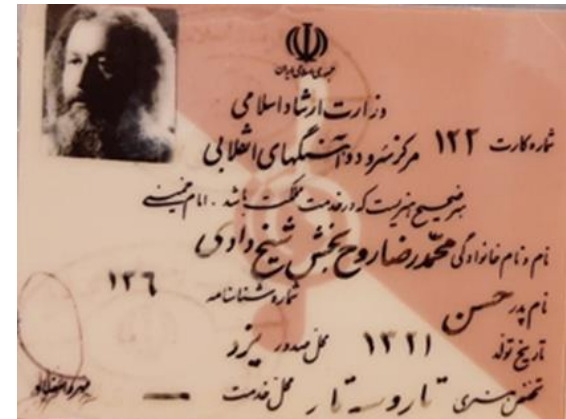 جمهوری اسلامی ایران
وزارت ارشاد اسلامی
شماره کارت ۱۲۲ مرکز سرود و آهنگهای انقلابی
هنر صحیح هنریست که در خدمت باشد . امام خمینی
نام و نام خانوادگی محمدرضا روح بخش شیخ دادی
نام پدر حسن شماره شناسنامه ۱۲۶
تاریخ تولد ۱۳۲۱ محل صدور یزد
تخصص هنری تار و سه تار محل خدمت —
مهر و امضاء